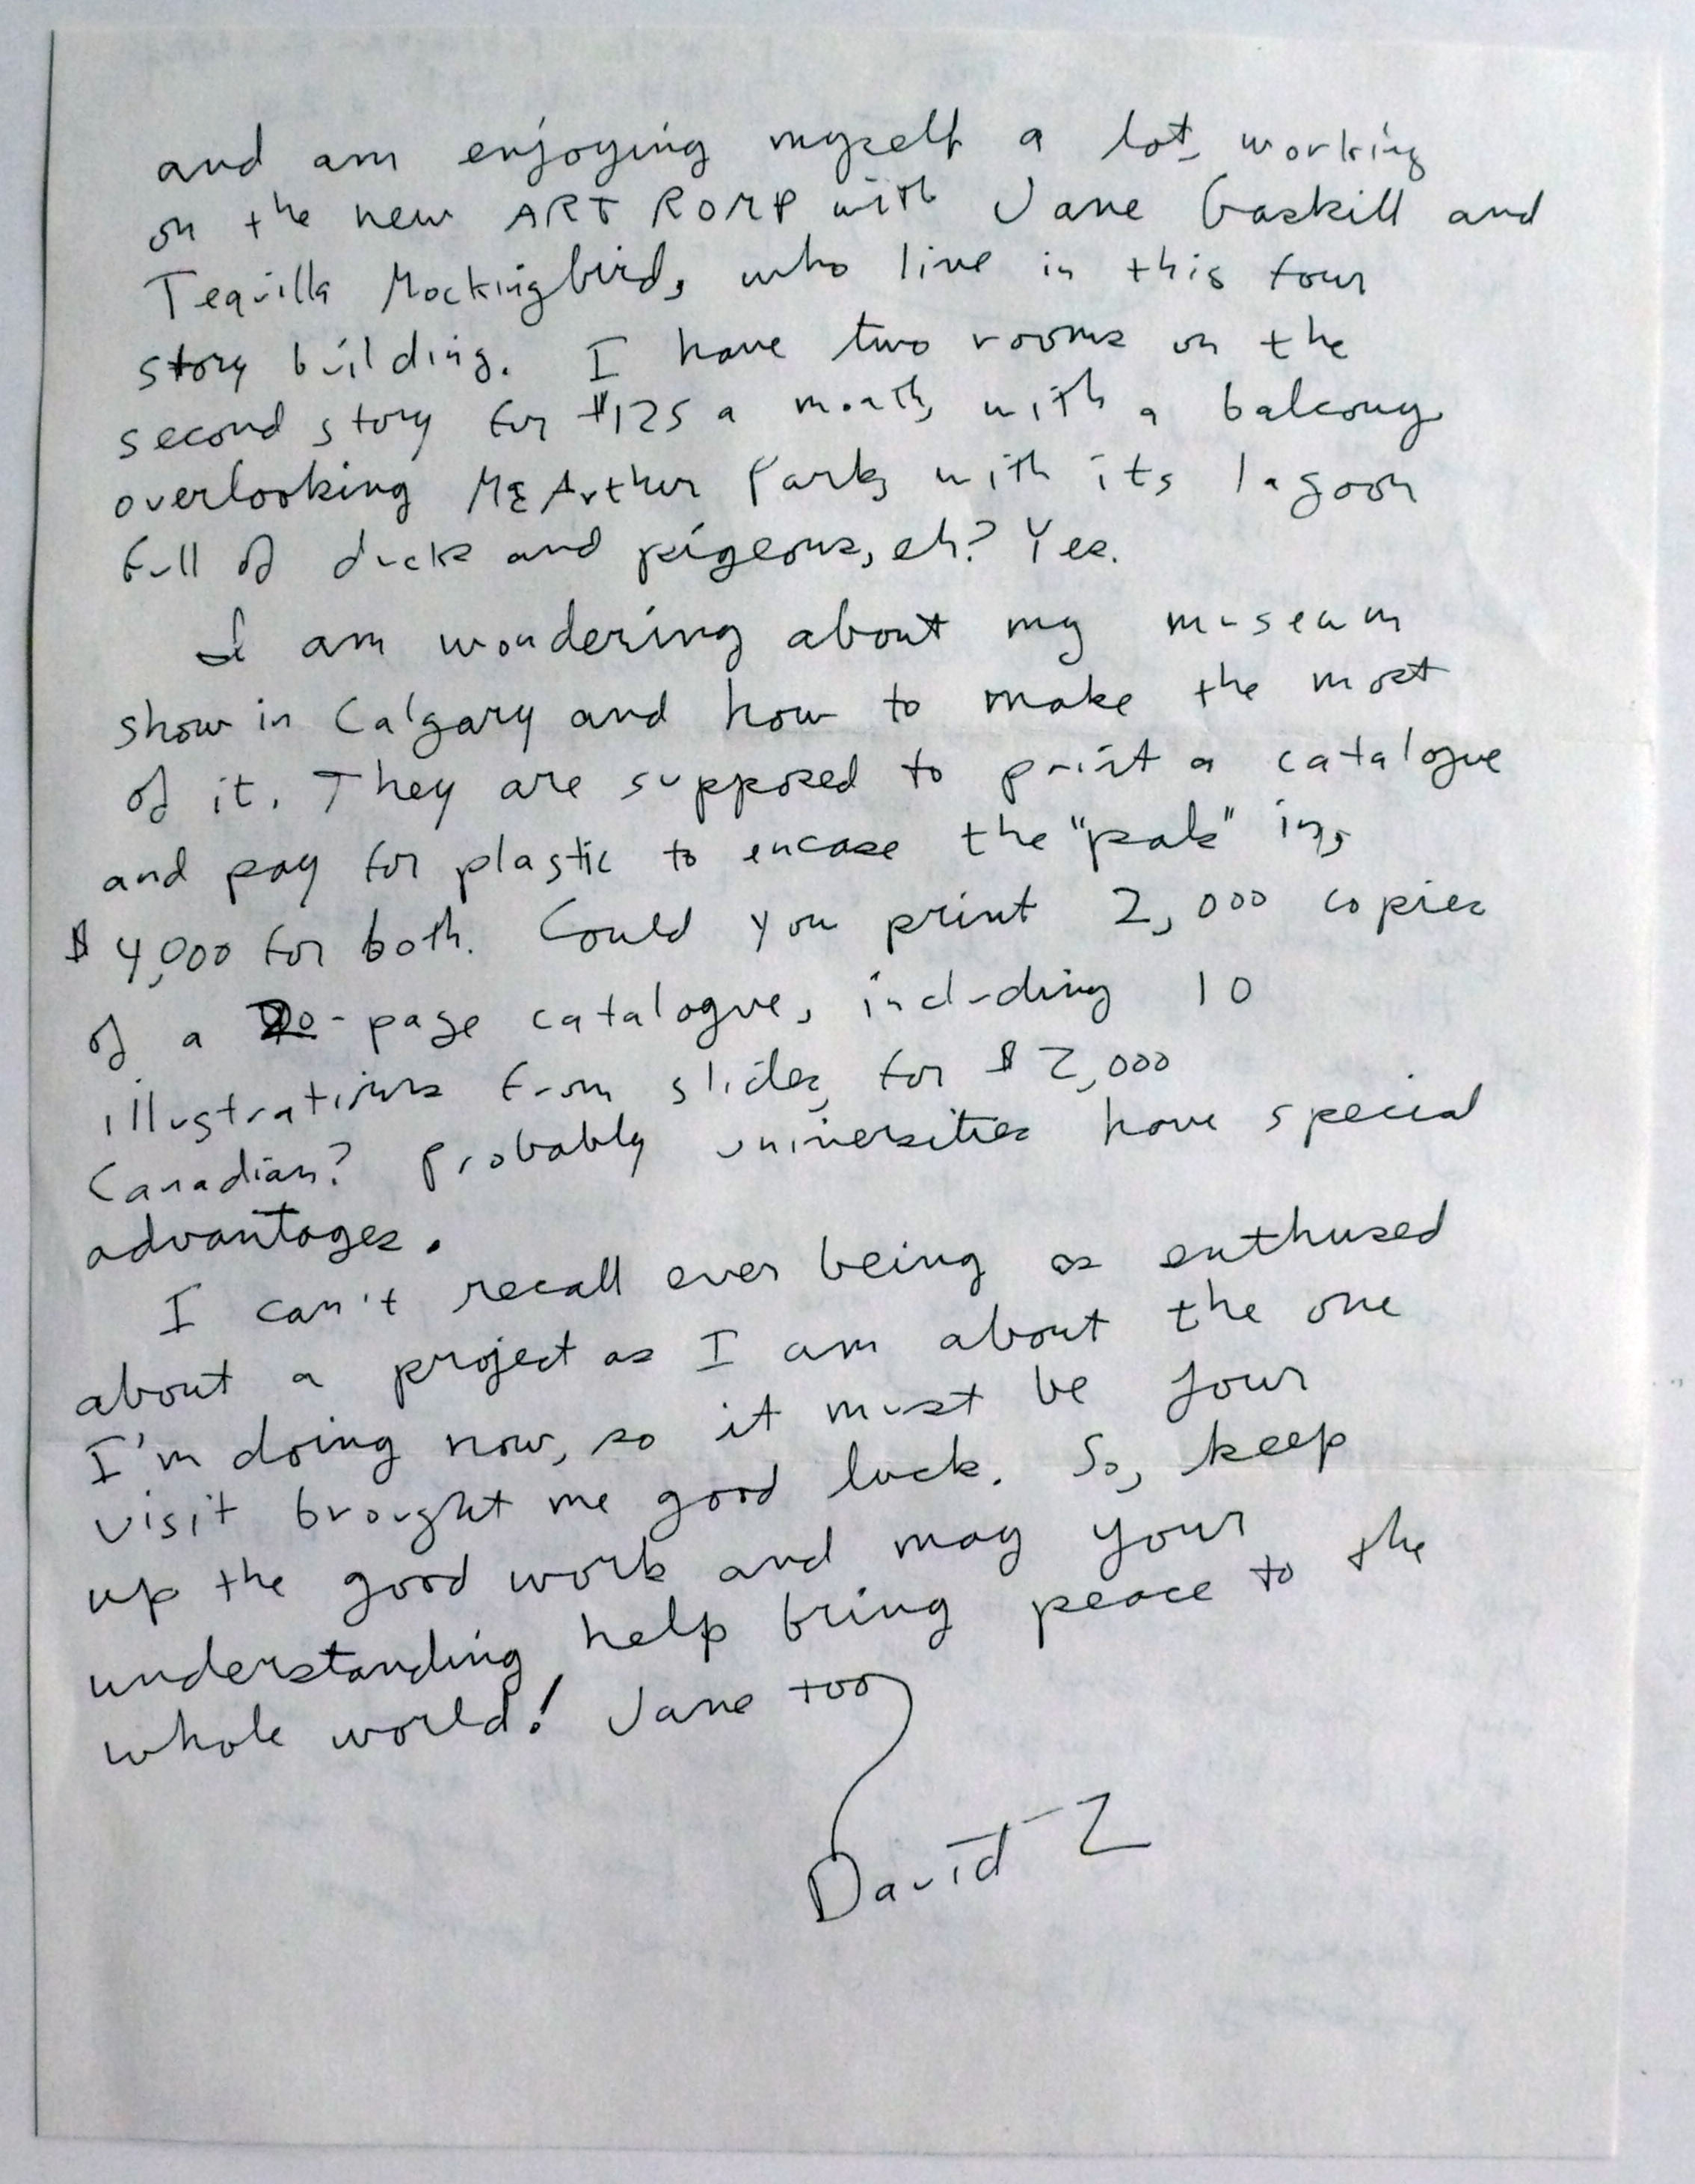 and am enjoying myself a lot, working
on the new ART ROMP with Jane Gaskill and
Tequilla Mockingbird, who live in this four
story building. I have two rooms on the
second story for $125 a month, with a balcony
overlooking McArthur Park, with its lagoon
full of ducks and pigeons, eh? Yes.
I am wondering about my museum
show in Calgary and how to make the most
of it. They are supposed to print a catalogue
and pay for plastic to encase the "pak" in,
$4,000 for both. Could you print 2,000 copies
of a 20-page catalogue, including 10
illustrations from slides, for $2,000
Canadian? Probably universities have special
advantages.
I can't recall ever being as enthused
about a project as I am about the one
I'm doing now, so it must be your
visit brought me good luck. So, keep
up the good work and may your
understanding help bring peace to the
whole world! Jane too,
David Z